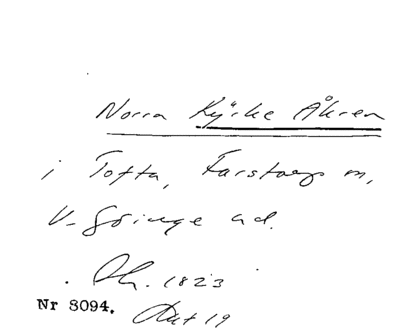 Norra Kyrke Åkren
i Tofta, Farstorps sn,
V. Göinge hd.
Lh. 1823
Nr 8094. Akt 19